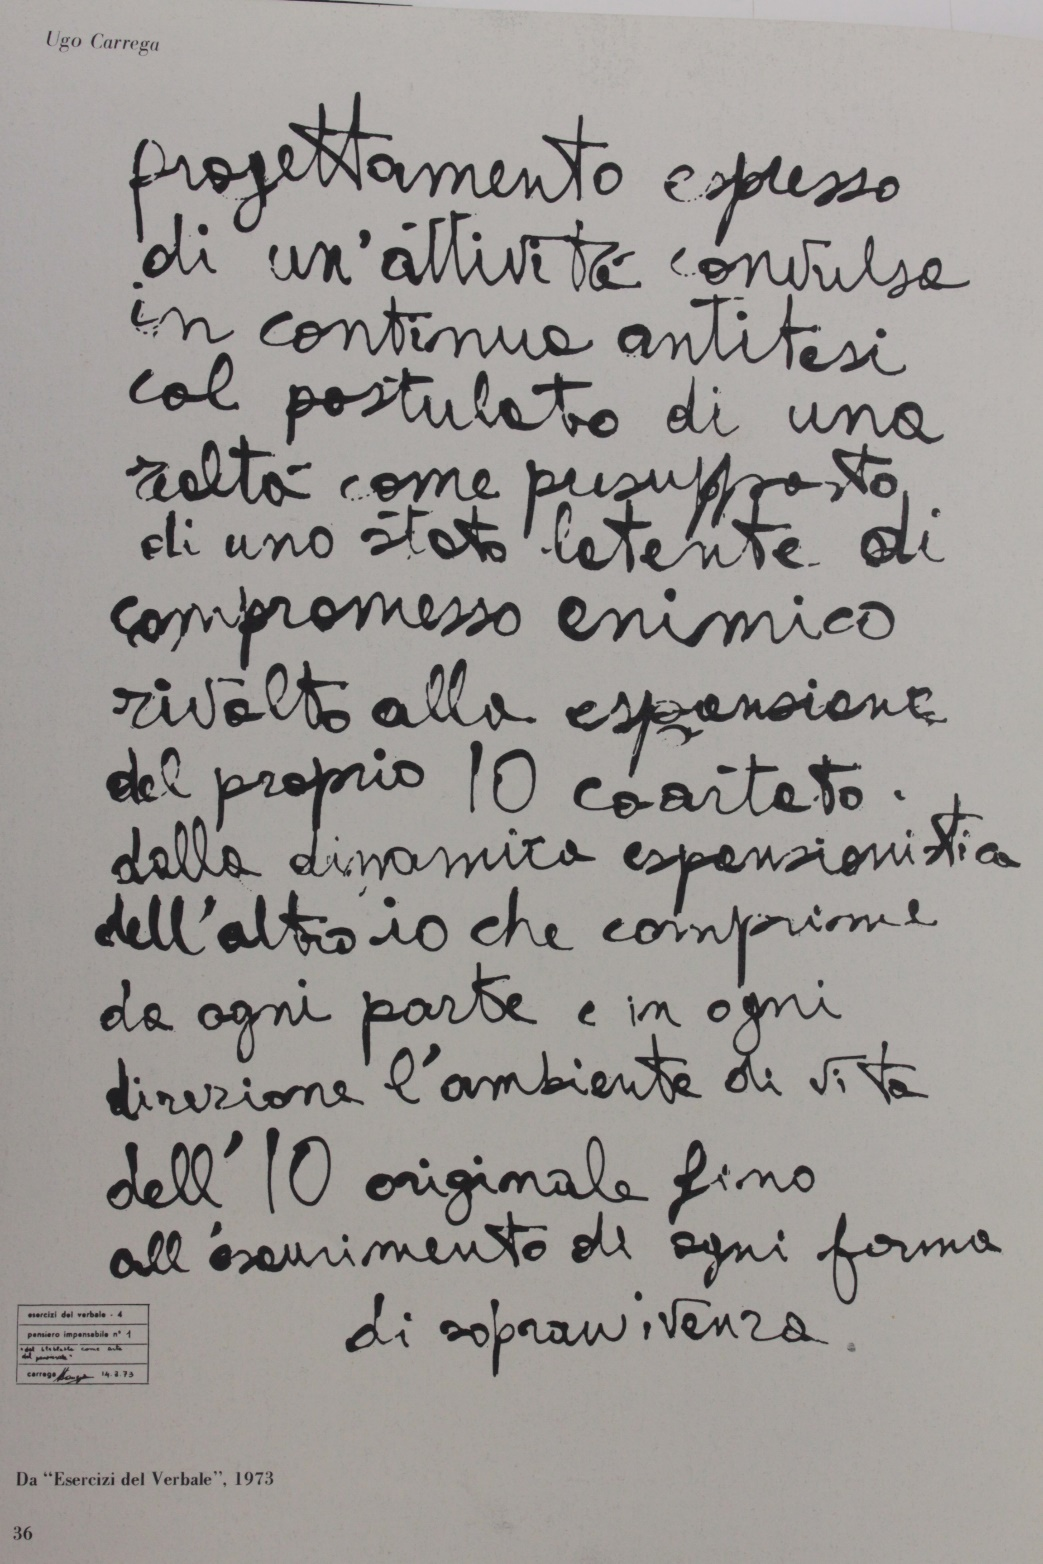 Ugo Carrega
progettamento espresso
di un'attività convulsa
in continua antitesi
col postulato di una
realtà come presupposto
di uno stato latente di
compromesso enimico
rivolto alla espansione
del proprio IO coartato.
dalla dinamica espansionistica
dell'altro io che comprime
da ogni parte e in ogni
direzione l'ambiente di vita
dell'IO originale fino
all'esaurimento di ogni forma
di sopravvivenza
esercizi del verbale - 4
pensiero impensabile n° 1
come
del
carrega 14.8.73
Da “Esercizi del Verbale”, 1973
36